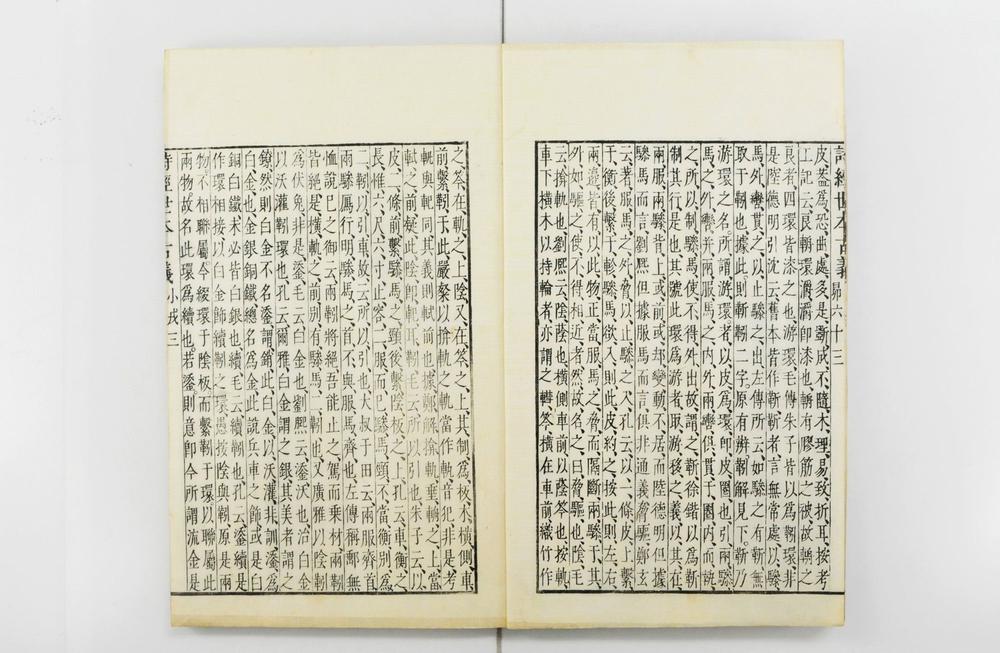 詩經世本古義 昴六十三
皮、蓋爲恐曲處、灸是斵成、不隨木理、易致折耳、按考
工記云、良輈環灂、灂卽漆也、輈有膠筋之被、故輈之
良者、四環皆漆之也、游環、毛傳朱子皆以爲靷環、非
是、陸德明引沈云、舊本皆作靳、靳者、言無常處、以驂
馬外轡貫之、以止驂之出、左傳所云、如驂之有靳、無
取于靷也、據此、則靳靷二字、原有辨、靷解見下、靳乃
游環之名、所謂游環者、以皮爲環、卽皮圈也、引兩驂
馬之外轡、并兩服馬之內外兩轡、俱貫于圈內、而執
之、所以制驂馬、使不得外出、故謂之靳、徐鍇以爲靳
制其行是也、其號此環爲游者、取游移之義、以其在
兩服兩驂皆上、或前或却、變動不居、而陸德明但據
驂馬而言、劉熙但據服馬而言、俱非通義、脅驅、鄭玄
云、著服馬之外脅、以止驂之入、孔云、以一條皮、上繫
于衡、後繫于軫、驂馬欲入、則此皮約之、按此則左右
兩邉皆有、以此物正當服馬之脅、而隔斷兩驂于其
外、如驅之、使不得相近者然、故名之曰脅驅也、陰、毛
云、揜軌也、劉熙云、陰、蔭也、橫側車前、以蔭笭也、按軌、
車下橫木以持輪者、亦謂之轊、笭橫在車前、織竹作
之、笭在軌之上、陰又在笭之上、其制爲板木橫側車
前、繫靷于此、嚴粲以揜軌之軌、當作軓、音犯、非是、考
軓與軌同、其義則軾前也、據鄭解揜軌、垂輈之上、當
軾之前、疑此陰卽軓耳、靷、毛云、所以引也、朱子云、以
皮二條、前繫驂馬之頸、後繫陰板之上、孔云、車衡之
長、惟六尺六寸、止容二服而巳、驂馬頸不當衡、別爲
二靷、以引車、故云所以引也、大叔于田云、兩服齊首、
兩驂鴈行、明驂馬之首、不與服馬齊也、左傳稱郵無
恤說巳之御云、兩靷將絕、吾能止之、駕而乘材、兩靷
皆絕、是橫軌之前、別有驂馬二靷也、又廣雅以陰靷
爲伏兔、非是、鋈、毛云、白金也、劉熙云、鋈、沃也、冶白金
以沃灌靷環也、孔云、爾雅、白金謂之銀、其美者謂之
鐐、然則白金不名鋈、謂銷此白金、以沃灌、非訓鋈爲
白金也、金銀銅鐵、總名爲金、此說兵車之飾、或是白
銅白鐵、未必皆白銀也、續、毛云、續靷也、孔云、鋈續、是
作環相接、以白金飾續靷之環、愚按陰與靷原是兩
物、不相聯屬、今綴環于陰板、而繫靷于環、以聯屬此
兩物、故名此環爲續也、若鋈、則意卽今所謂流金是
詩經世本古義 小戎三